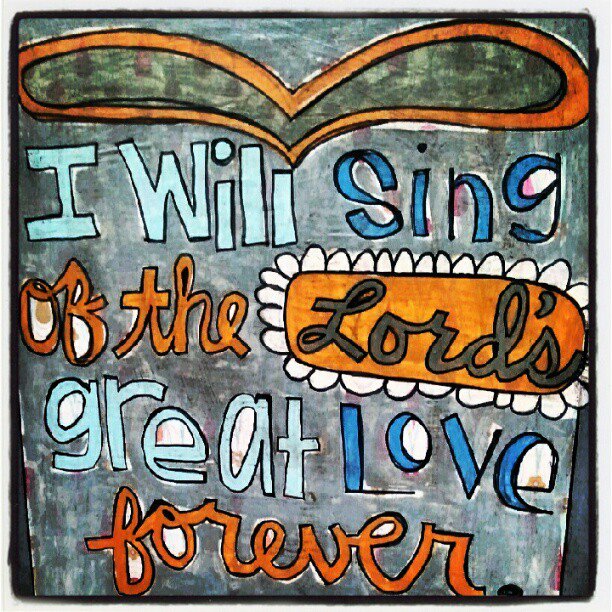 I Will Sing
of the Lord's
great Love
forever.